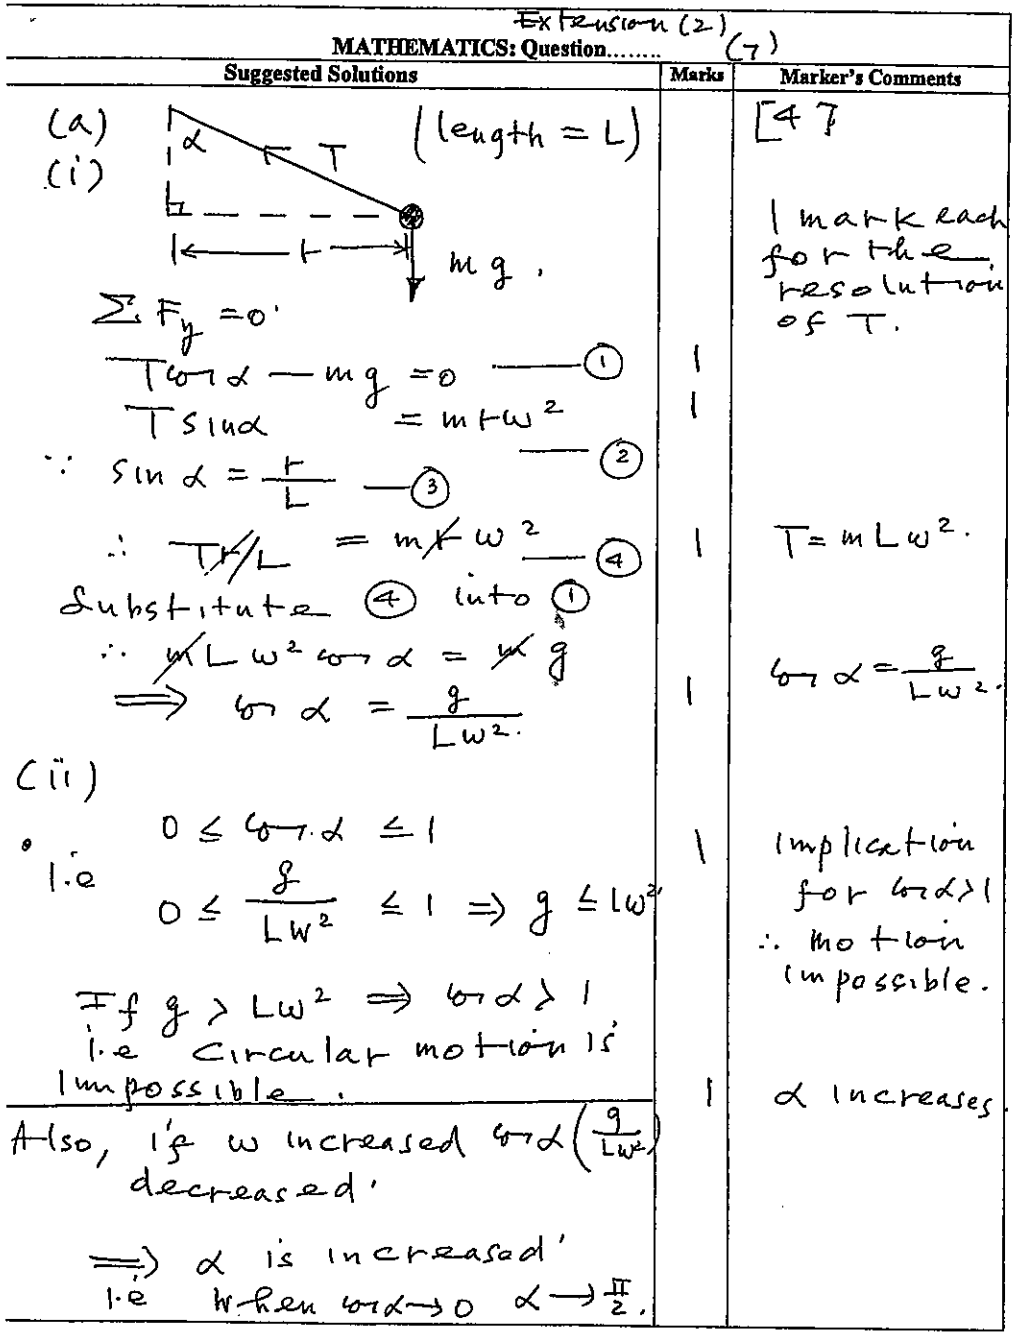 Extension (2)
MATHEMATICS: Question........ (7)
Suggested Solutions Marks Marker's Comments
(a) α T (length = L) [4]
(i)
r
mg.
1 mark each
for the
resolution
of T.
Σ Fy = 0
T cos α − mg = 0 —— ① 1
T sin α = mrω² 1
—— ②
∵ sin α = r/L —— ③
∴ Tr/L = mrω² —— ④ 1 T = mLω².
Substitute ④ into ①
∴ mLω² cos α = mg
⟹ cos α = g/Lω². 1 cos α = g/Lω².
(ii)
0 ≤ cos α ≤ 1 1 implication
i.e 0 ≤ g/Lω² ≤ 1 ⇒ g ≤ Lω² for cos α > 1
∴ motion
impossible.
If g > Lω² ⇒ cos α > 1
i.e Circular motion is
impossible. 1 α increases
Also, if ω increased cos α (g/Lω²)
decreased.
⟹ α is increased
i.e When cos α → 0 α → π/2.